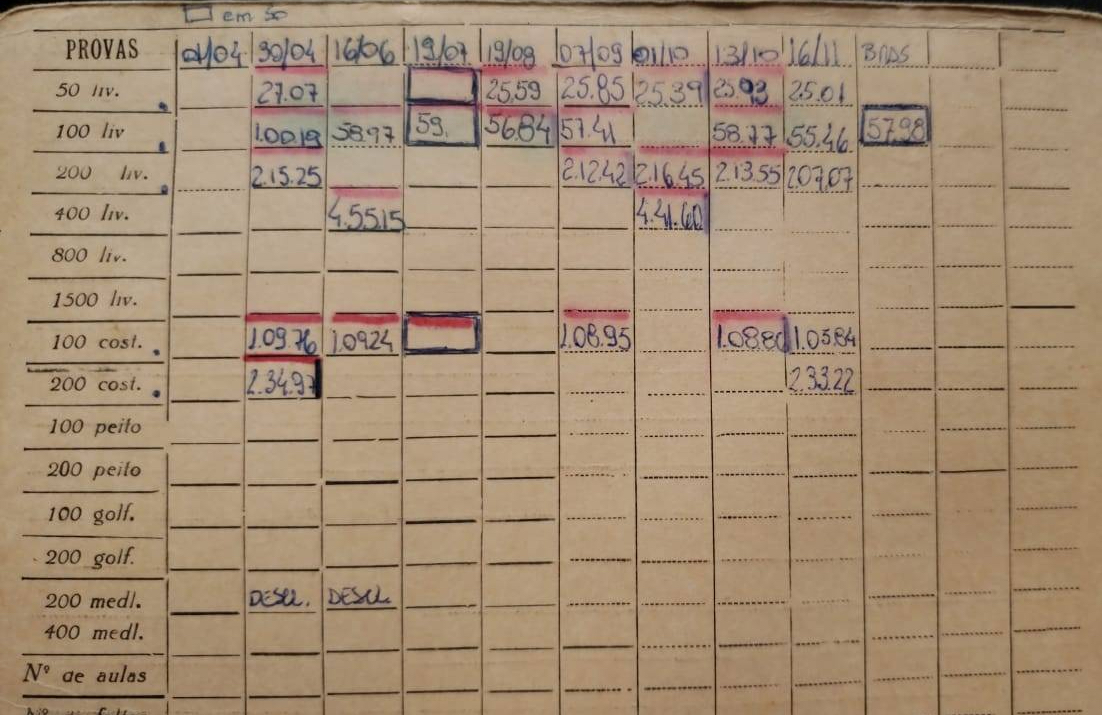 em 50
PROVAS 01/04 30/04 16/06 19/07 19/08 07/09 01/10 13/10 16/11 BRAS
50 liv. 27.07 25.59 25.85 25.39 25.93 25.01
100 liv 1.00.19 58.97 59. 56.84 57.41 58.77 55.46 57.98
200 liv. 2.15.25 2.12.42 2.16.45 2.13.55 2.07.07
400 liv. 4.55.15 4.41.60
800 liv.
1500 liv.
100 cost. 1.09.76 1.09.24 1.08.95 1.08.80 1.05.84
200 cost. 2.34.97 2.33.22
100 peito
200 peito
100 golf.
200 golf.
200 medl. DESCL. DESCL
400 medl.
Nº de aulas